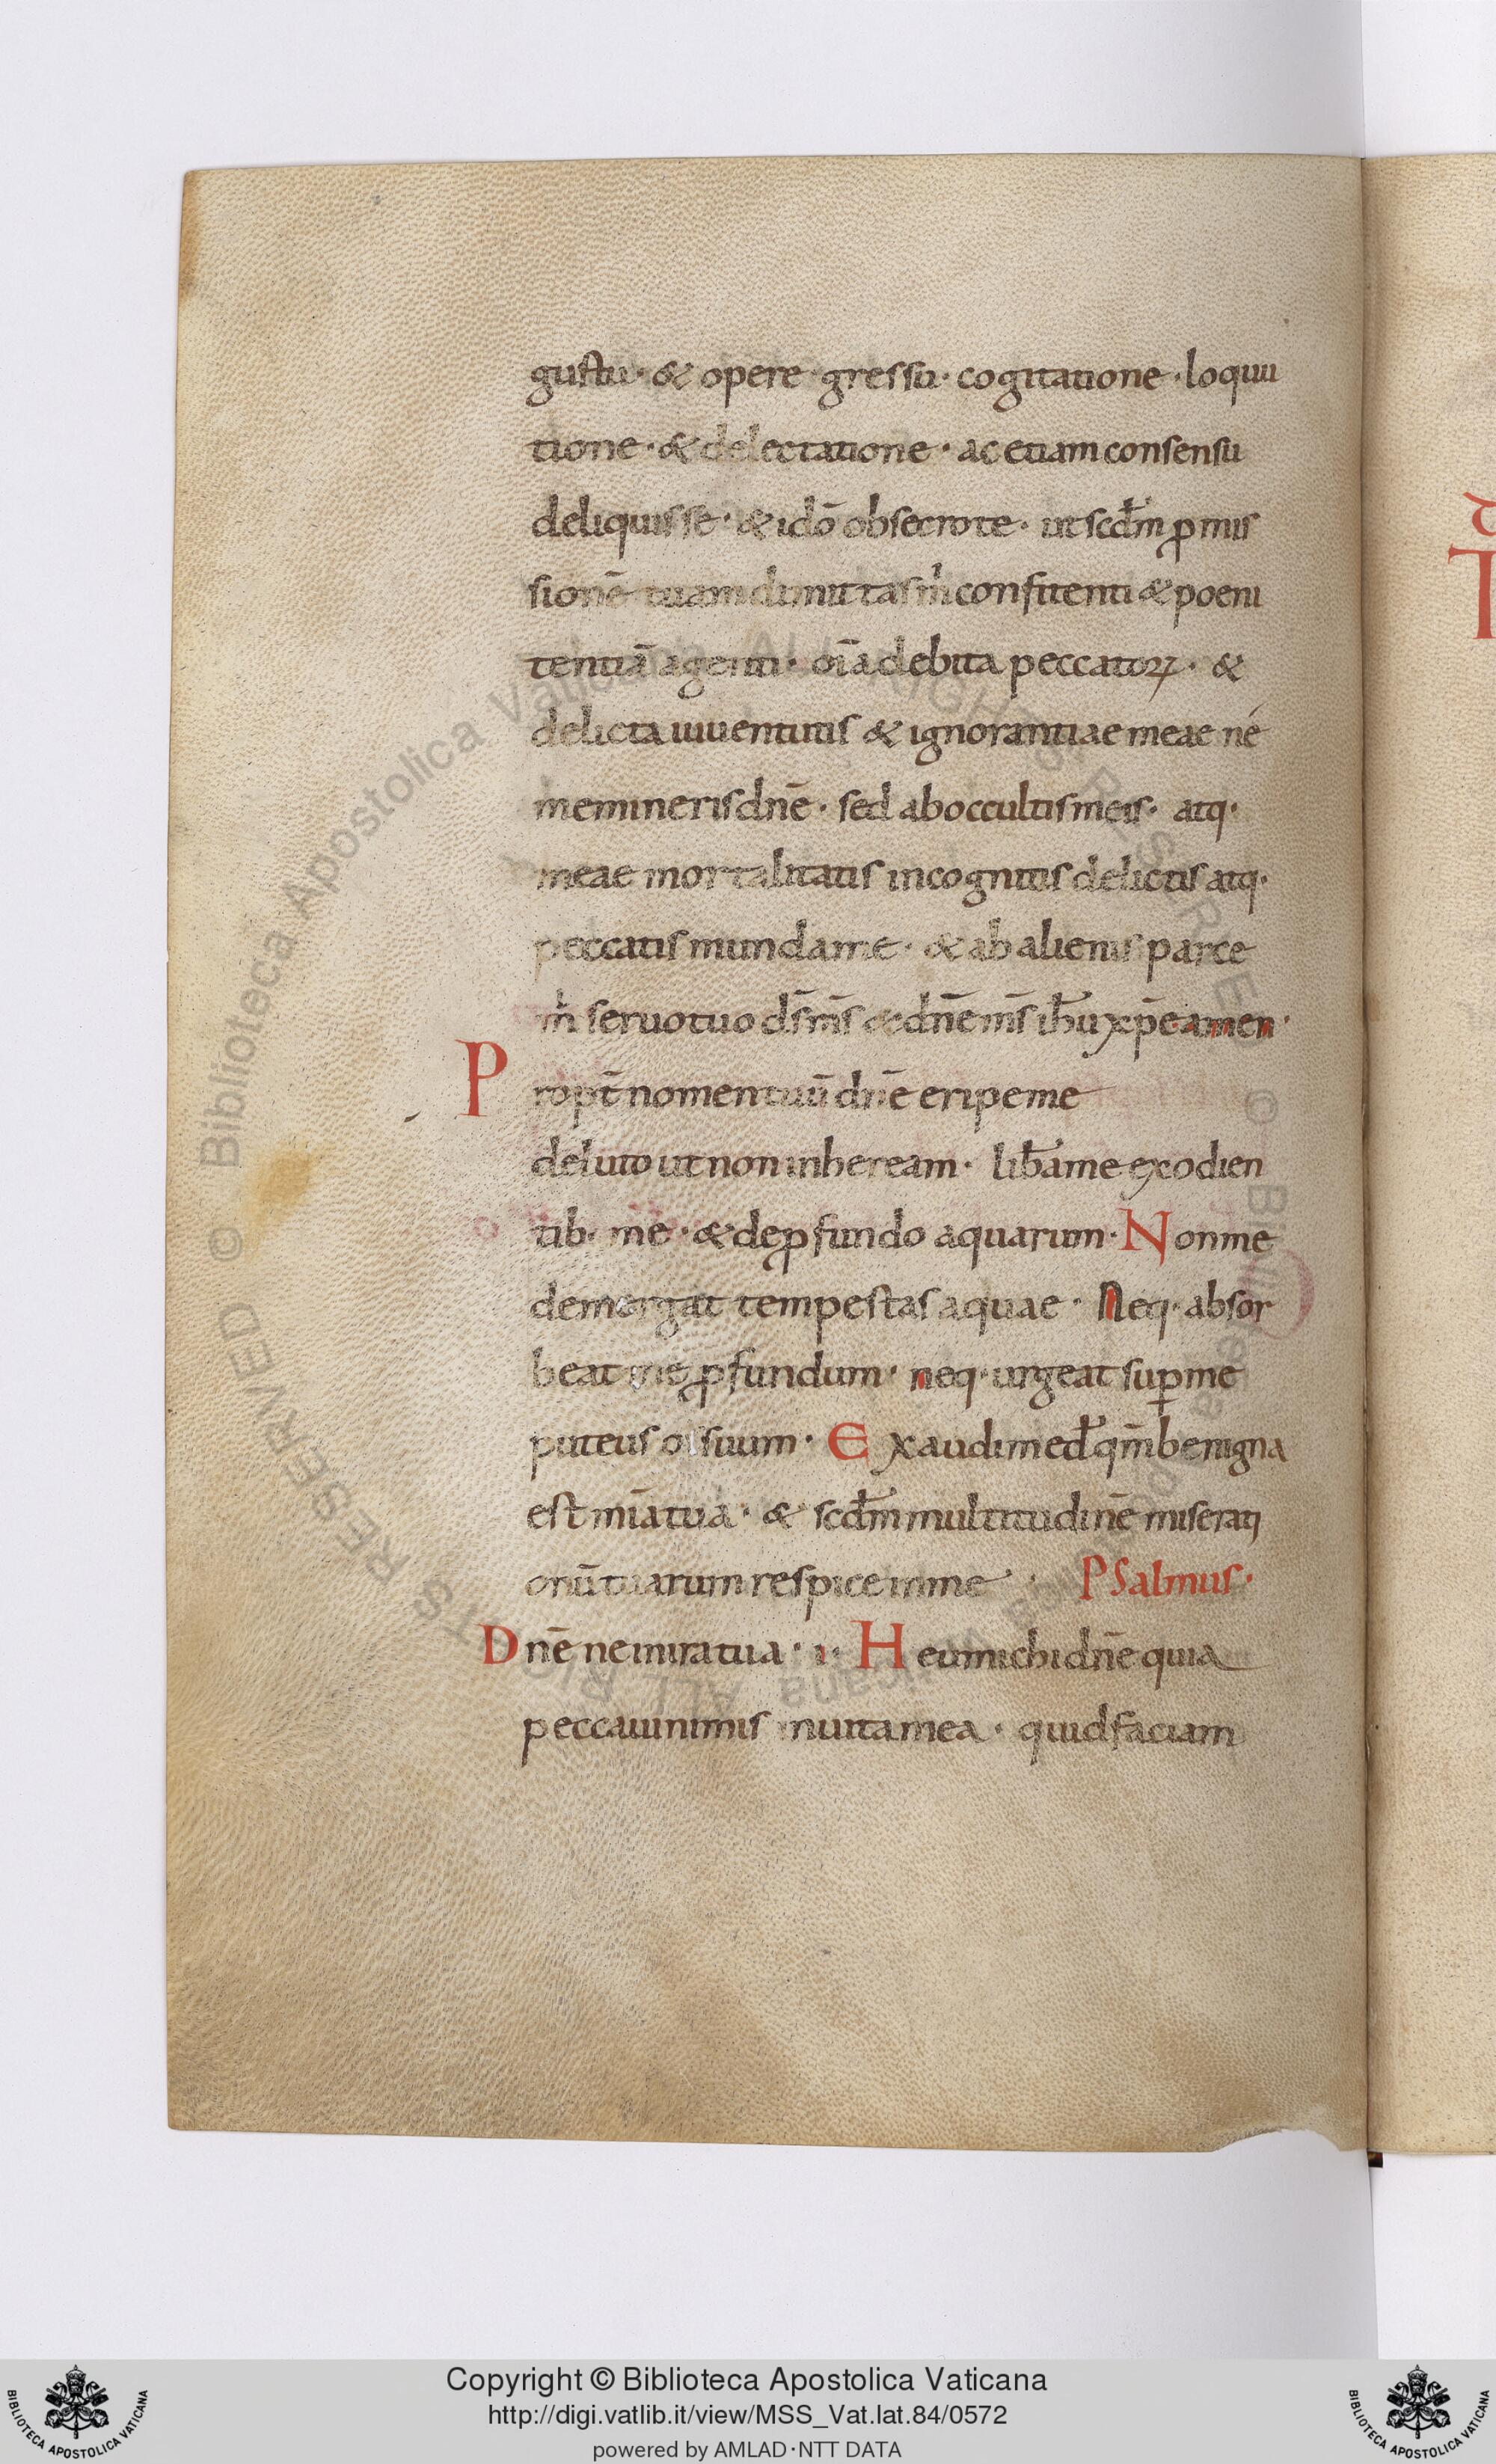 gustu · & opere · gressu · cogitatione · loquu
tione · & delectatione · ac etiam consensu
deliquisse · & idō obsecro te · ut scd̄m ꝓmis
sionē tuam dimittas m̄ confitenti & poeni
tentiā agenti · oīa debita peccatoꝝ · &
delicta iuuentutis & ignorantiae meae né
memineris dnē · sed ab occultis meis · atq·
meae mortalitatis incognitis delictis atq·
peccatis munda me · & ab alienis parce
m̄ seruo tuo d̄s m̄s & dnē m̄s ih̄u xp̄e amen ·
Propt̄ nomen tuū dnē eripe me
de luto ut non inheream · lib̄a me ex odien
tib· me · & de ꝓfundo aquarum · Non me
demergat tempestas aquae · Neq· absor
beat me ꝓfundum · neq· urgeat suꝑ me
puteus os suum · Exaudi me d̄ qm̄ benigna
est mīa tua · & scd̄m multitudinē miserati
onū tuarum respice in me · Psalmus ·
Dnē ne in ira tua · i · Heu michi dnē quia
peccaui nimis in uita mea · quid faciam
Copyright © Biblioteca Apostolica Vaticana
http://digi.vatlib.it/view/MSS_Vat.lat.84/0572
powered by AMLAD·NTT DATA